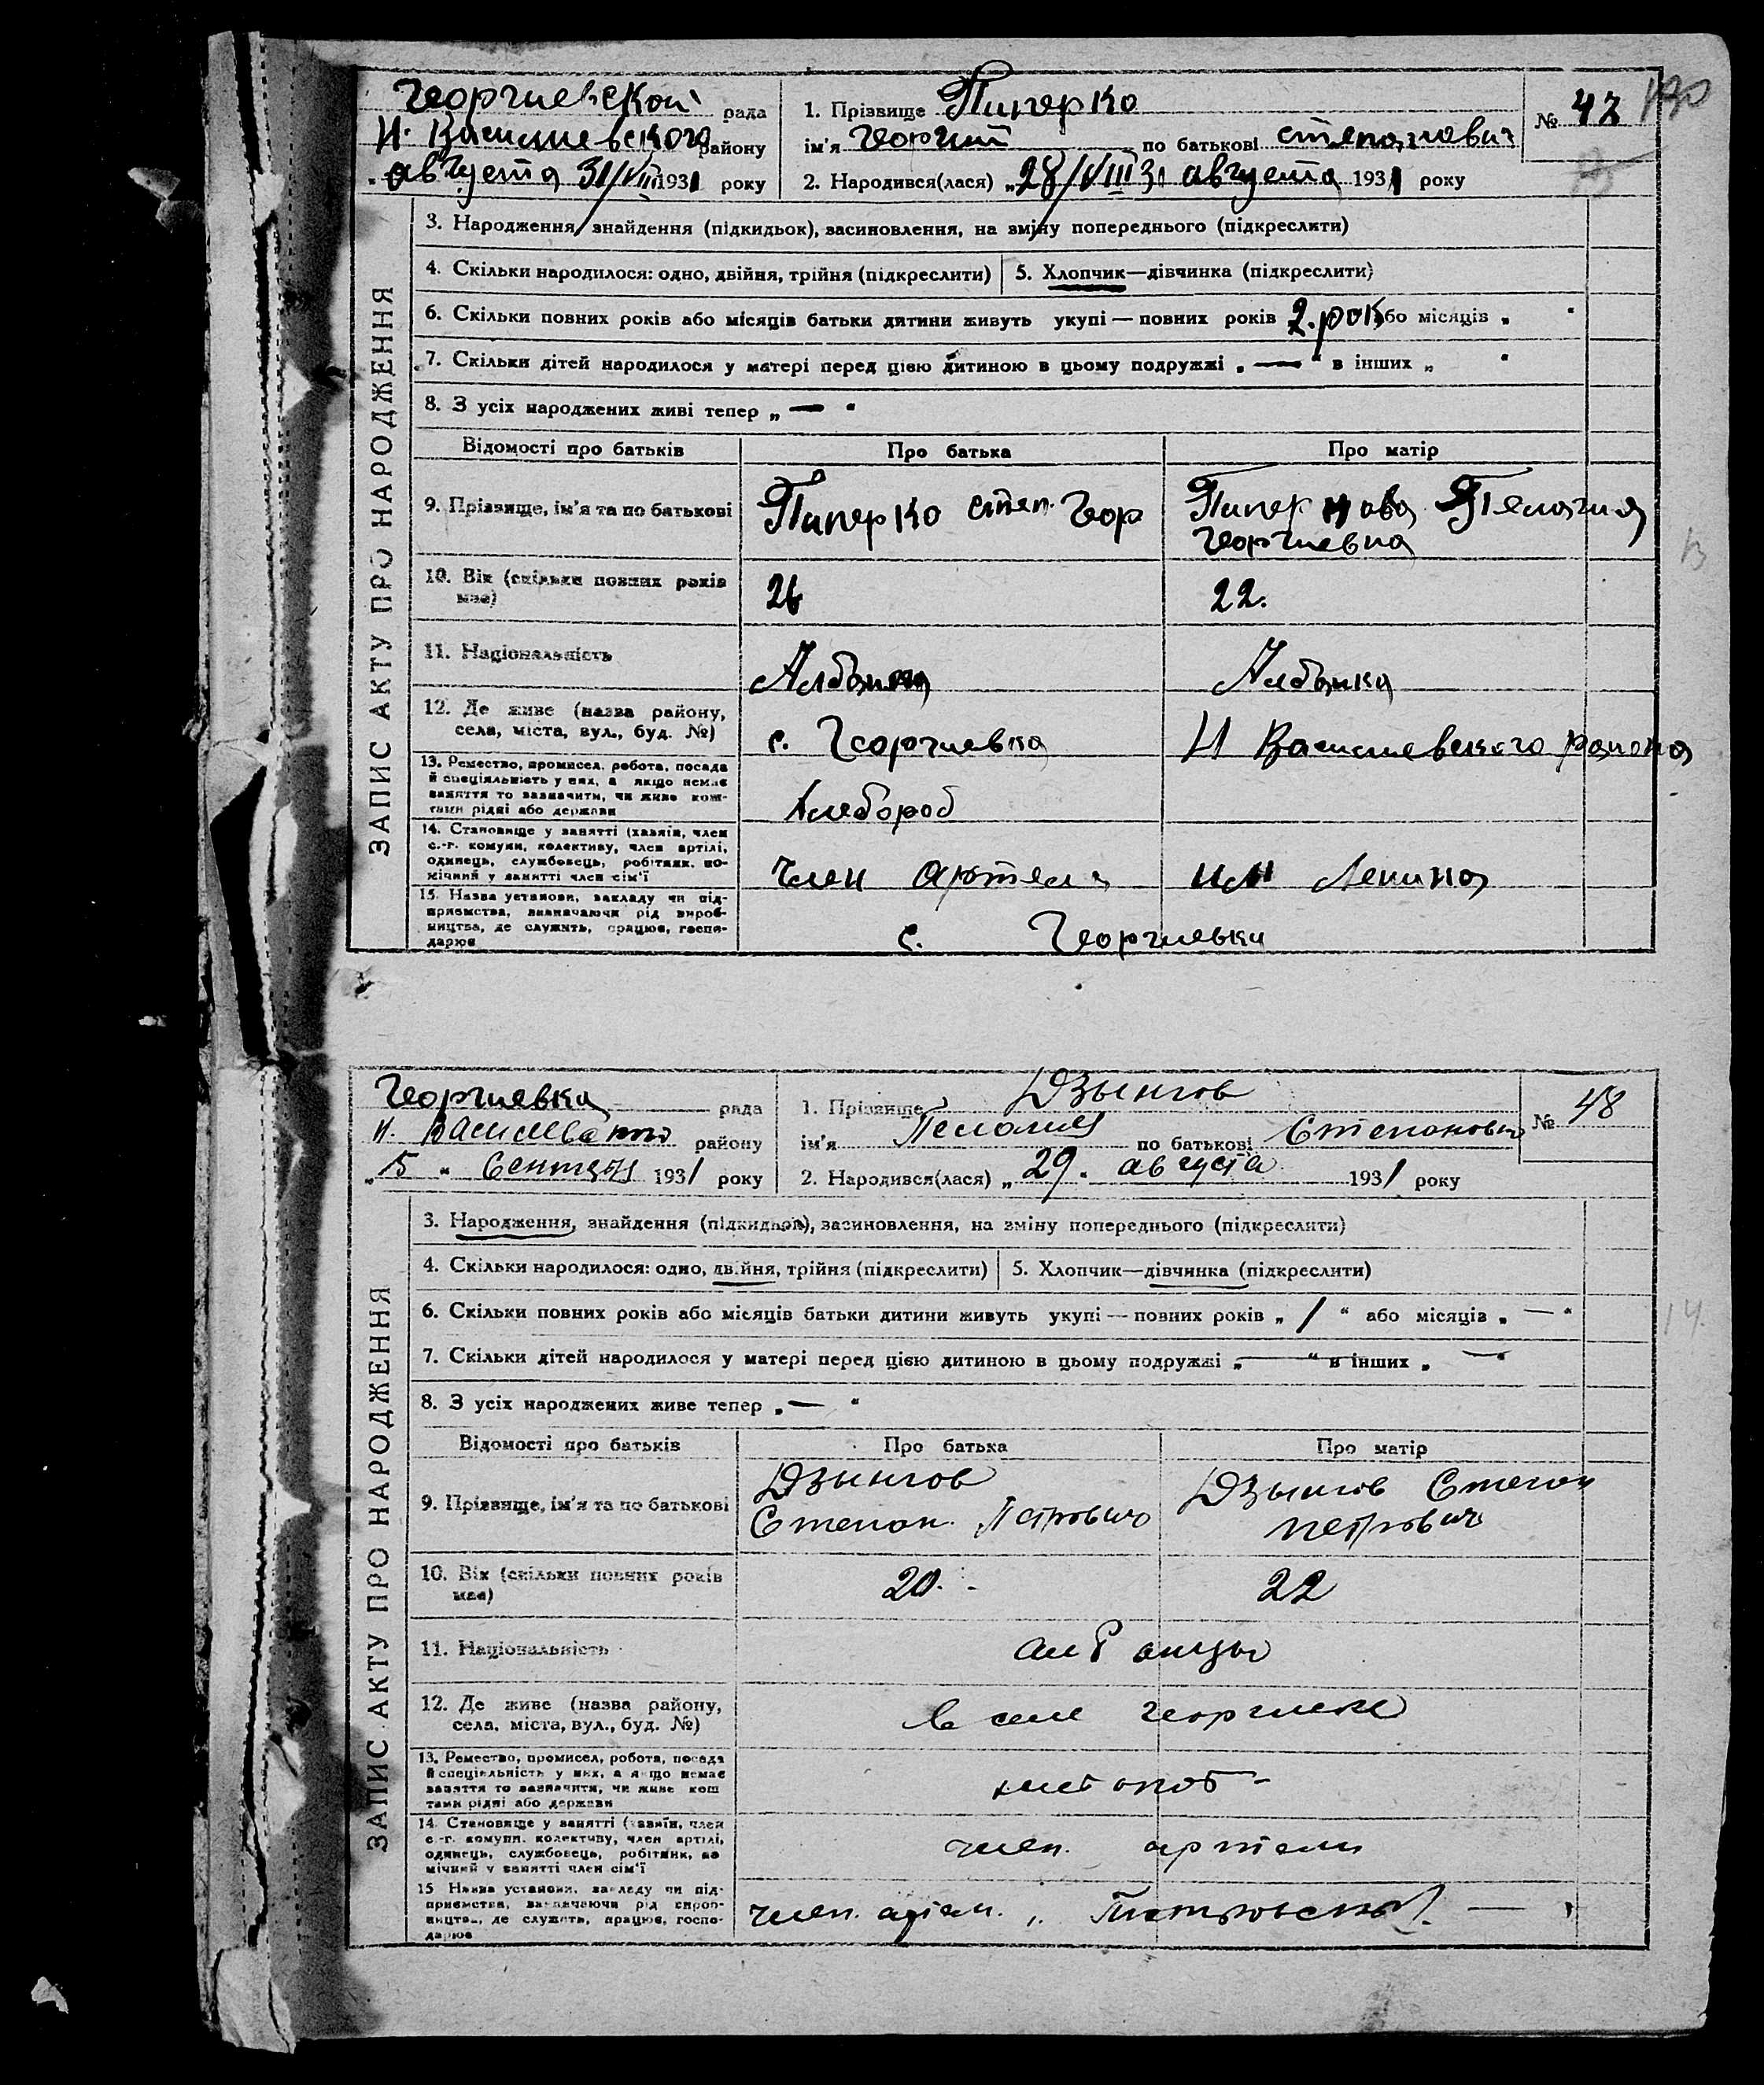 Георгиевской рада
Н. Василиевского району
августа 31/VIII 1931 року
1. Прізвище Пиперко
ім'я Георгий по батькові степанович
2. Народився(лася) „28/VIII 31 августа 1931 року
№ 47
130
ЗАПИС АКТУ ПРО НАРОДЖЕННЯ
3. Народження, знайдення (підкидьок), засиновлення, на зміну попереднього (підкреслити)
4. Скільки народилося: одно, двійня, трійня (підкреслити) 5. Хлопчик—дівчинка (підкреслити)
6. Скільки повних років або місяців батьки дитини живуть укупі — повних років 2. рок або місяців „ “
7. Скільки дітей народилося у матері перед цією дитиною в цьому подружжі „ — “ в інших „ “
8. З усіх народжених живі тепер „ — “
Відомості про батьків Про батька Про матір
9. Прізвище, ім'я та по батькові Пиперко степ. Геор Пиперкова Пелагия
Георгиевна
13
10. Вік (скільки повних років
має) 26 22.
11. Національність Албанка
12. Де живе (назва району,
села, міста, вул., буд. №) с. Георгиевка Н Василиевского района
13. Ремество, промисел, робота, посада
й спеціяльність у них, а якщо немає
заняття то зазначити, чи живе кош-
тами рідні або держави Хлебороб
14. Становище у занятті (хазяїн, член
с.-г. комуни, колективу, член артілі,
одинець, службовець, робітник, по-
мічний у занятті член сім'ї член артели им Ленина
15. Назва установи, закладу чи під-
приємства, визначаючи рід вироб-
ництва, де служить, працює, госпо-
дарює с. Георгиевки
Георгиевка рада
Н. Василевского району
„ 15 “ Сентября 1931 року
1. Прізвище Дзынгов
ім'я Пелагия по батькові Степанович
2. Народився(лася) „ 29. августа 1931 року
№ 48
ЗАПИС АКТУ ПРО НАРОДЖЕННЯ
3. Народження, знайдення (підкидьок), засиновлення, на зміну попереднього (підкреслити)
4. Скільки народилося: одно, двійня, трійня (підкреслити) 5. Хлопчик—дівчинка (підкреслити)
6. Скільки повних років або місяців батьки дитини живуть укупі — повних років „ 1 “ або місяців „ — “
14.
7. Скільки дітей народилося у матері перед цією дитиною в цьому подружжі „ — “ в інших „ — “
8. З усіх народжених живе тепер „ — “
Відомості про батьків Про батька Про матір
9. Прізвище, ім'я та по батькові Дзынгов
Степан Петрович Дзынгов Степан
Петрович
10. Вік (скільки повних років
має) 20. 22
11. Національність албанцы
12. Де живе (назва району,
села, міста, вул., буд. №) в селе Георгиевке
13. Ремество, промисел, робота, посада
й спеціяльність у них, а якщо немає
заняття то зазначити, чи живе кош
тами рідні або держави хлебороб -
14. Становище у занятті (хазяїн, член
с.-г. комуни, колективу, член артілі,
одинець, службовець, робітник, по
мічний у занятті член сім'ї член артели
15 Назва установи, закладу чи під-
приємства, визначаючи рід вироб-
ництва, де служить, працює, госпо-
дарює член. артел. „